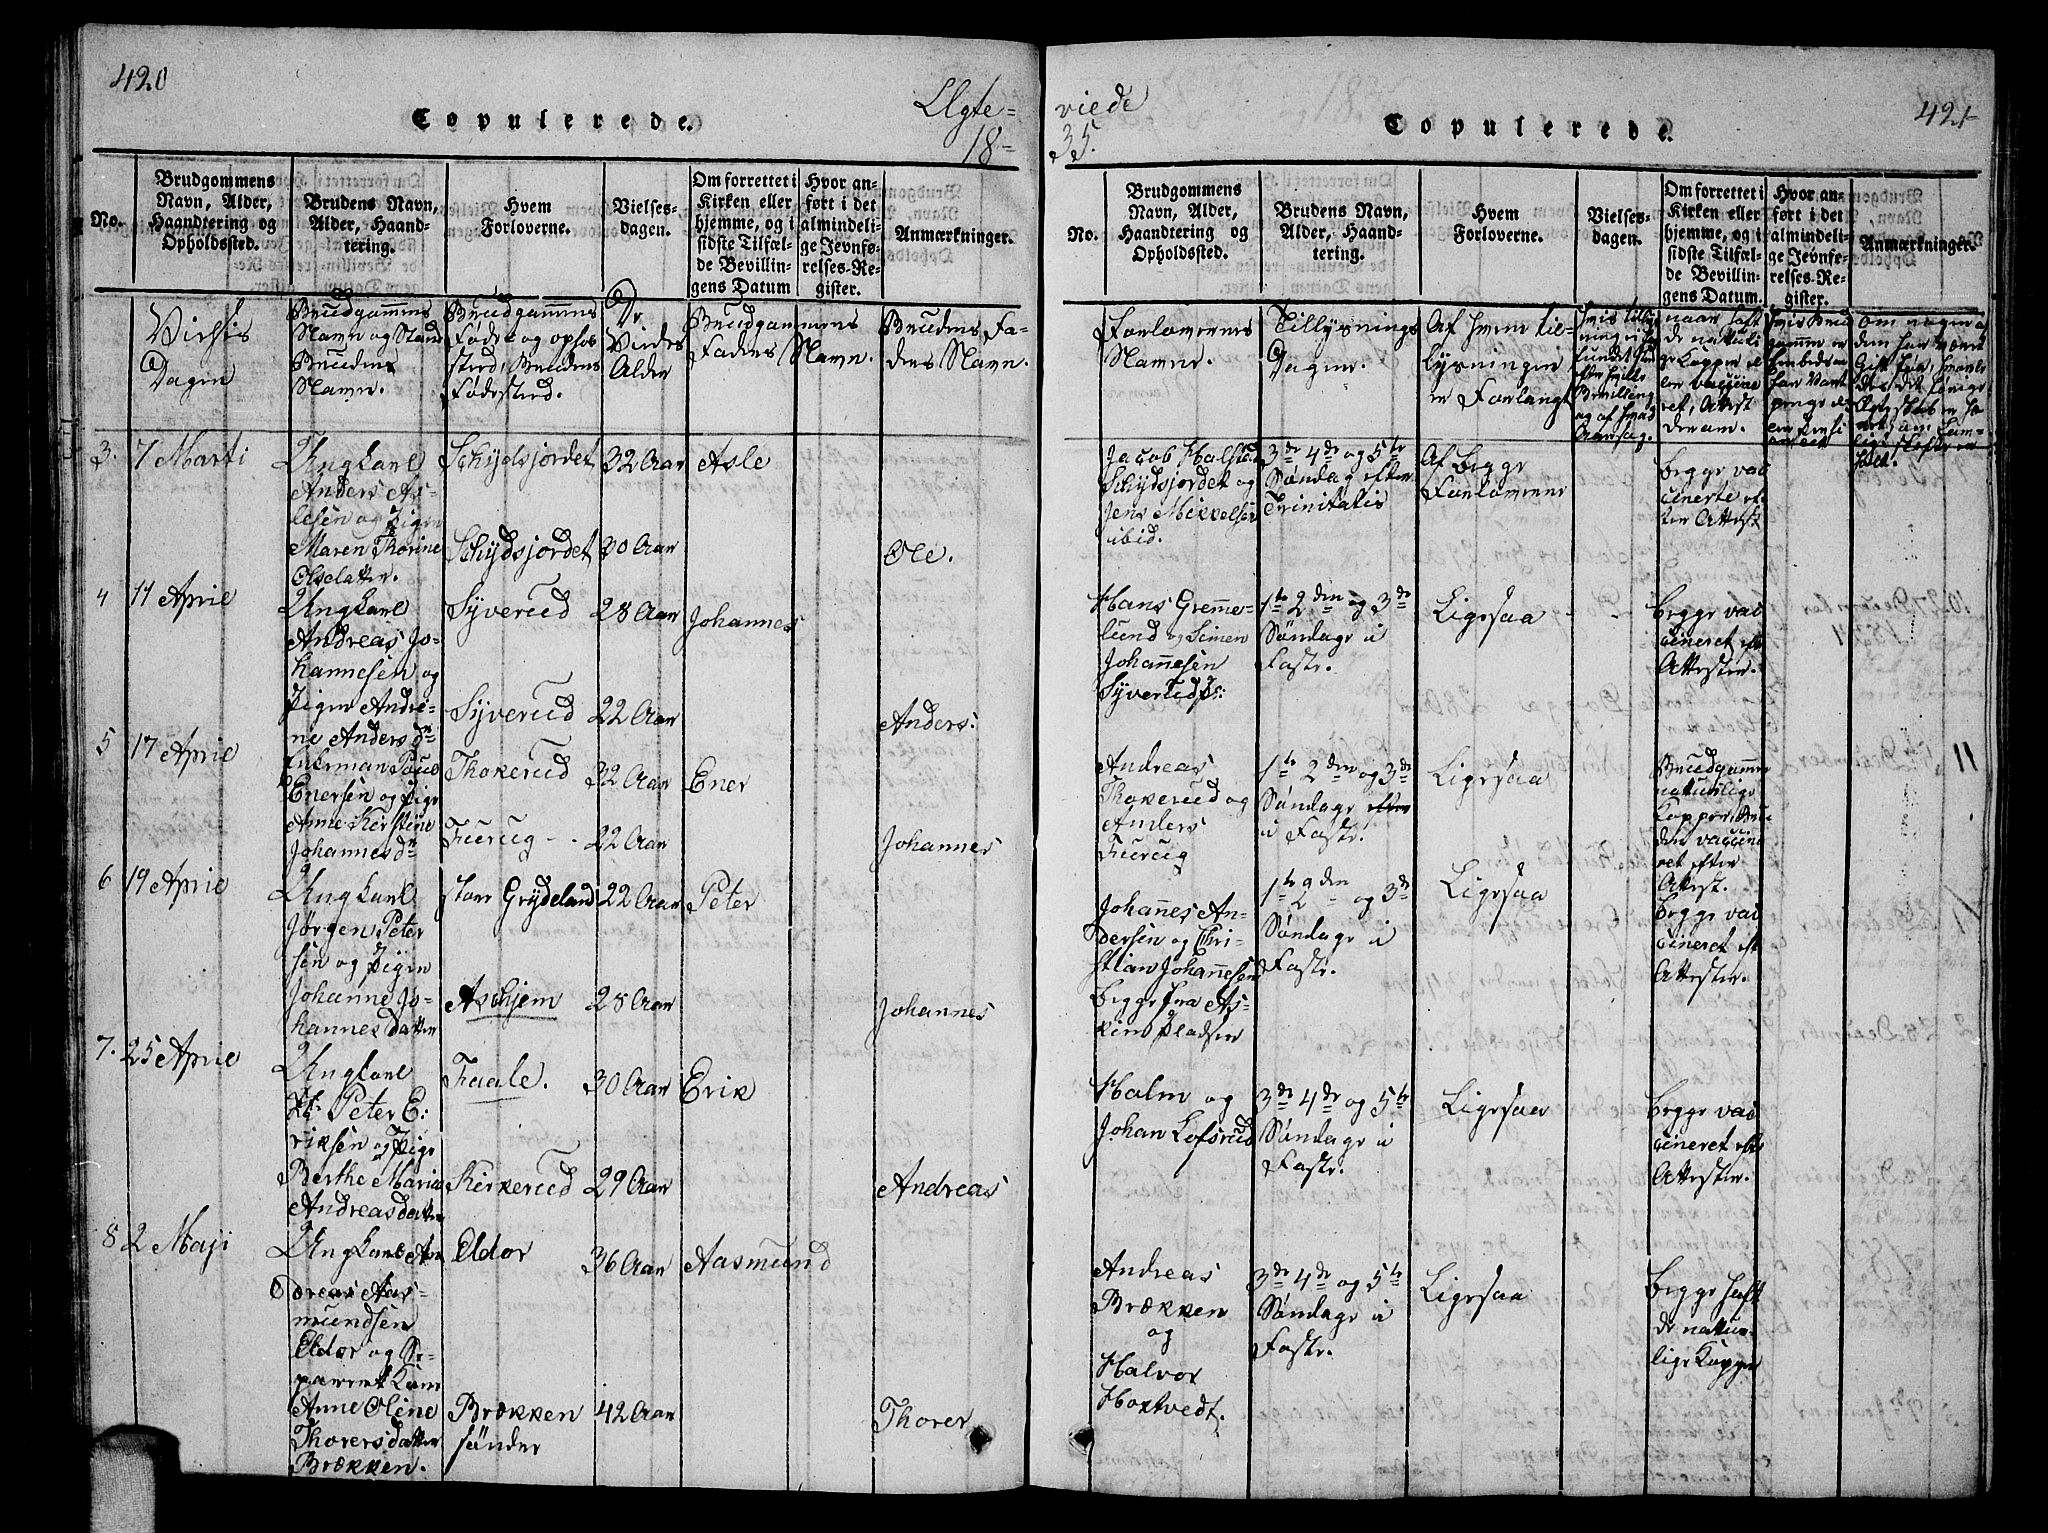 420
Copulerede.
Egte=
18-
No.
Brudgommens
Navn, Alder,
Haandtering og
Opholdssted.
Brudens Navn,
Alder, Haand-
tering.
Hvem
Forloverne.
Vielses-
dagen.
Om forrettet i
Kirken eller
hjemme, og i
sidste Tilfæl-
de Bevillin-
gens Datum
Hvor an-
ført i det
almindeli-
ge Jevnfø-
relses-Re-
gister.
Anmærkninger.
Vielses
Dagen
Brudgommens
Navn og Stand
Brudens
Navn.
Brudgommens
Føde og ophol
sted, Brudens
Fødested.
De
Viedes
Alder
Brudgommens
Faders Navn.
Brudens Fa-
ders Navn.
3. 7 Marti
Ungkarl
Anders As-
lesen og Pigen
Maren Thorine
Olsdatter.
Schydsjordet
Schydsjordet
32 Aar
30 Aar
Asle
Ole.
4 11 April
Ungkarl
Andreas Jo-
hannesen og
Pigen Andri-
ne Anders dr
Syverud
Syverud
28 Aar
22 Aar
Johannes
Anders:
5 17 April
Enkemand Poul
Enersen og Pige
Anne Kirstine
Johannesdr
Thokerud
Furug - -
32 Aar
22 Aar
Ener
Johannes
6 19 April
Ungkarl
Jørgen Peter
sen og Pigen
Johanne Jo-
hannes datter
store Grydeland
Aschjem
22 Aar
28 Aar
Peter
Johannes
7. 25 April
Ungkarl
Peter E:
riksen og Pige
Berthe Maria
Andreasdatter
Faale.
Kirkerud
30 Aar
29 Aar
Erik
Andreas
8 2 Maji
Ungkarl An
dreas Aas-
mundsen
Eldor og Se-
pareret Kone
Anne Oline
Thorersdatter
Brækken.
Eldor
Brækken
sønder
36 Aar
42 Aar
Aasmund
Thorer
viede
35.
Copulerede.
421
No.
Brudgommens
Navn, Alder,
Haandtering og
Opholdssted.
Brudens Navn,
Alder, Haand-
tering.
Hvem
Forloverne.
Vielses-
dagen.
Om forrettet i
Kirken eller
hjemme, og i
sidste Tilfæl-
de Bevillin-
gens Datum.
Hvor an-
ført i det
almindeli-
ge Jevnfø-
relses-Re-
gister.
Anmærkninger.
Forlovernes
Navne.
Tillysnings
Dagene.
Af hvem til-
lysningen
er Forlangt
Hvis tillys
ningen ei har
fundet sted
efter hvilke
Bevilling
og af hvad
Aarsag.
naar haft
de naturli
ge Kopper el
ler vaccine
ret, Attest
derom.
Hvis Brud
gommen er
Embedsmand
har
penge
Om nogen af
dem har været
Gift før,
Jacob Halste
Schydsjordet og
Jens Mikkelsen
ibid.
3de 4de og 5te
Søndag efter
Trinitatis
Af begge
Forloverne
begge vac
cinerte ef
ter Attest
Hans Gremme-
lund og Simen
Johannesen
Syverud
1te 2den og 3de
Søndage i
Faste.
Ligesaa
begge vac
cineret eft
Attester.
Andreas
Thokerud og
Anders
Furug
1te 2den og 3de
Søndage efter
i Faste.
Ligesaa
Brudgommen
naturlige
Kopper, Bru
den vaccine
ret efter
Attest.
Johannes An-
dersen og Chri-
stian Johannesen
begge fra As-
kim Pladsen
1te 2den og 3de
Søndage i
Faste.
Ligesaa
begge vac
cineret eft
Attester.
Holm og
Johan Lofsrud
3de 4de og 5te
Søndage i
Faste.
Ligesaa
begge vac
cineret efter
Attester.
Andreas
Brækken
og
Halvor
Hoxtvedt.
3de 4de og 5te
Søndage i
Faste.
Ligesaa
begge haft
de natur-
lige Kopper